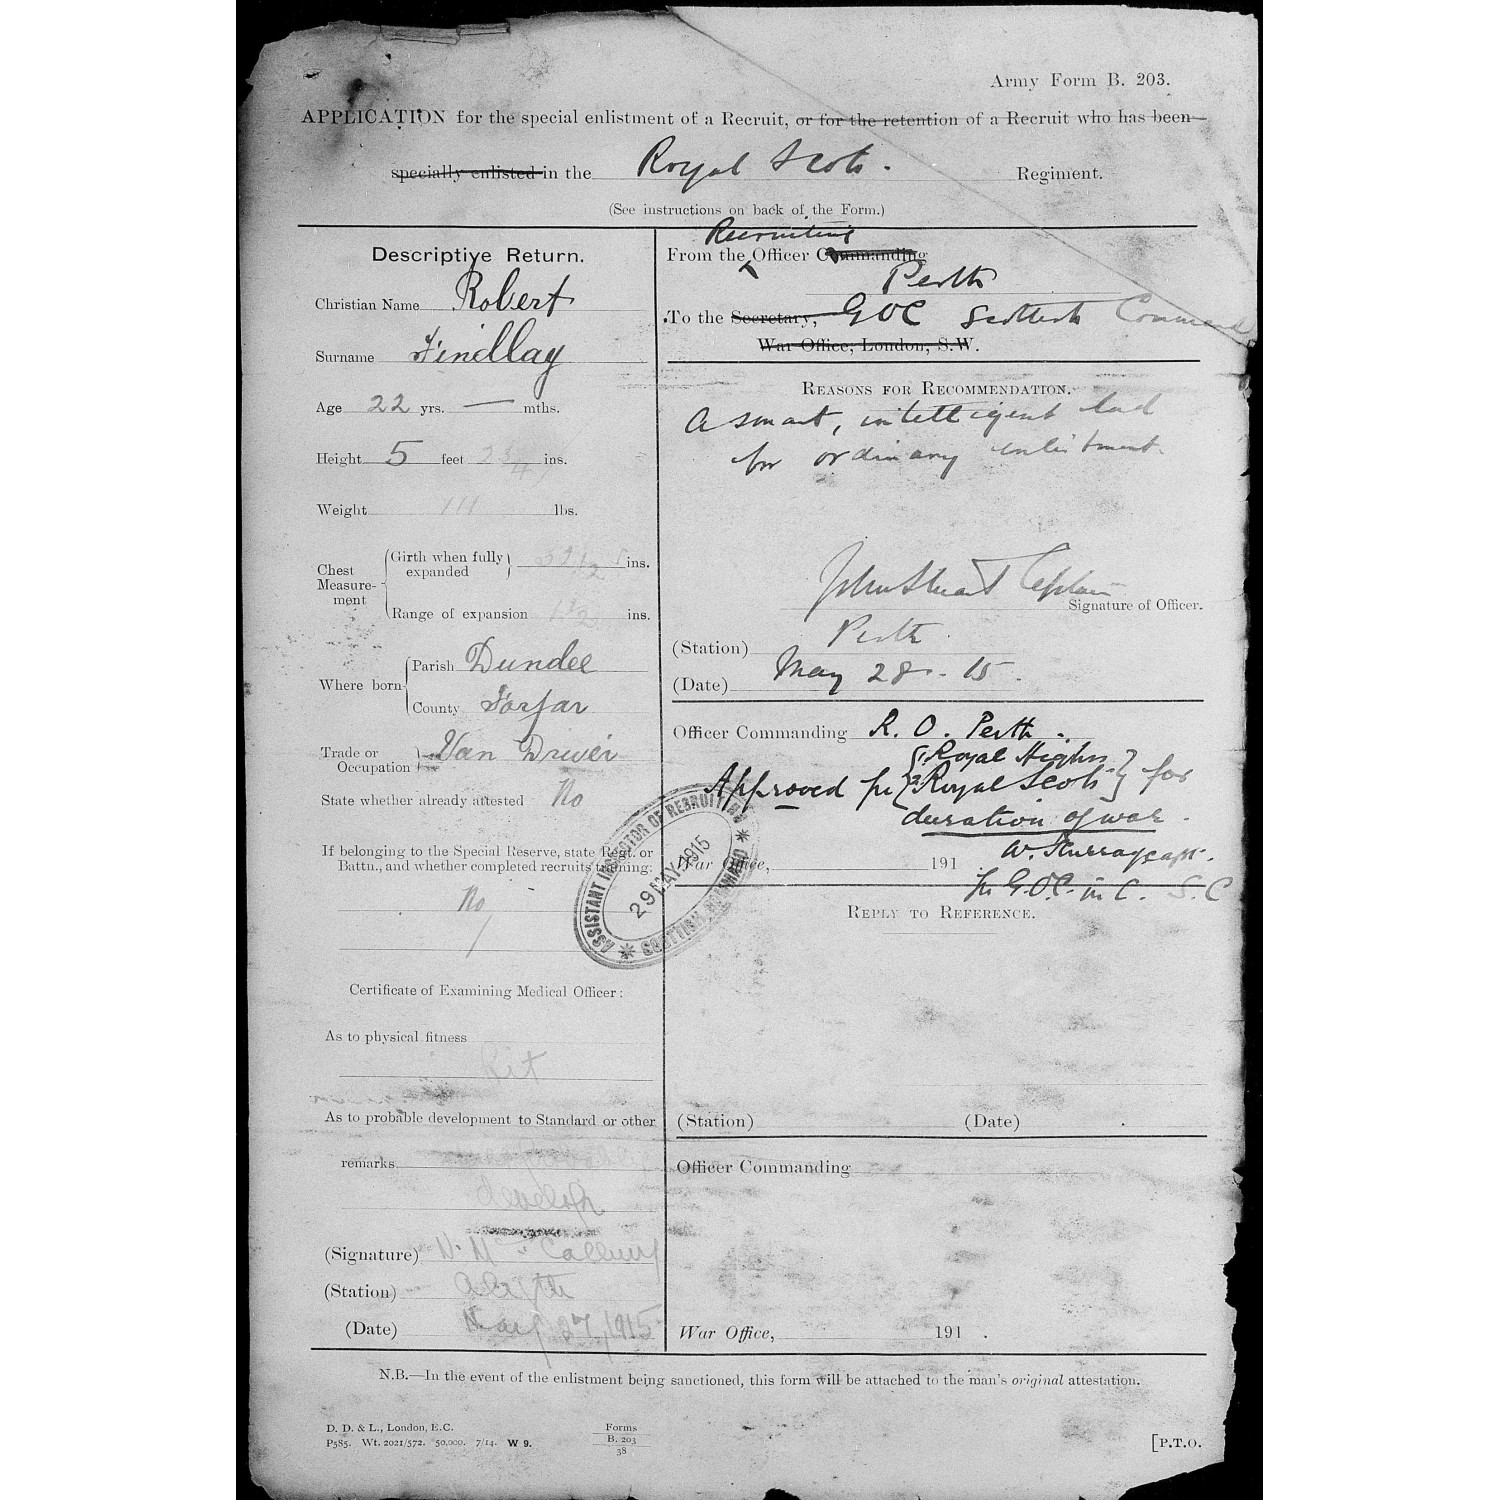 Army Form B. 203.
APPLICATION for the special enlistment of a Recruit, or for the retention of a Recruit who has been
specially enlisted in the Royal Scots. Regiment.
(See instructions on back of the Form.)
Descriptive Return.
Christian Name Robert
Surname Findlay
Age 22 yrs. — mths.
Height 5 feet 2 3/4 ins.
Weight 111 lbs.
Chest Measure-ment
Girth when fully expanded ins.
Range of expansion 1 1/2 ins.
Where born
Parish Dundee
County Forfar
Trade or Occupation Van Driver
State whether already attested No
If belonging to the Special Reserve, state Regt. or
Battn., and whether completed recruits training:
No
Certificate of Examining Medical Officer:
As to physical fitness
Fit
As to probable development to Standard or other
remarks
develop
(Signature)
(Station)
(Date) May 27, 1915
Recruiting
From the Officer Commanding
Perth
To the Secretary, GOC Scottish Command
War Office, London, S.W.
REASONS FOR RECOMMENDATION.
A smart, intelligent lad
for ordinary enlistment
John Stuart Captain
Signature of Officer.
(Station) Perth
(Date) May 28 - 15.
Officer Commanding R. O. Perth.
Approved for {1 Royal Highrs 2 Royal Scots} for
duration of war.
War Office, 191 W. Murray Capt.
for G.O.C. in C. S.C
ASSISTANT INSPECTOR OF RECRUITING
29 MAY 1915
SCOTTISH COMMAND
REPLY TO REFERENCE.
(Station) (Date)
Officer Commanding
War Office, 191 .
N.B.—In the event of the enlistment being sanctioned, this form will be attached to the man's original attestation.
D. D. & L., London, E.C.
P585. Wt. 2021/572. 50,000. 7/14. W 9.
Forms
B. 203
38
[P.T.O.